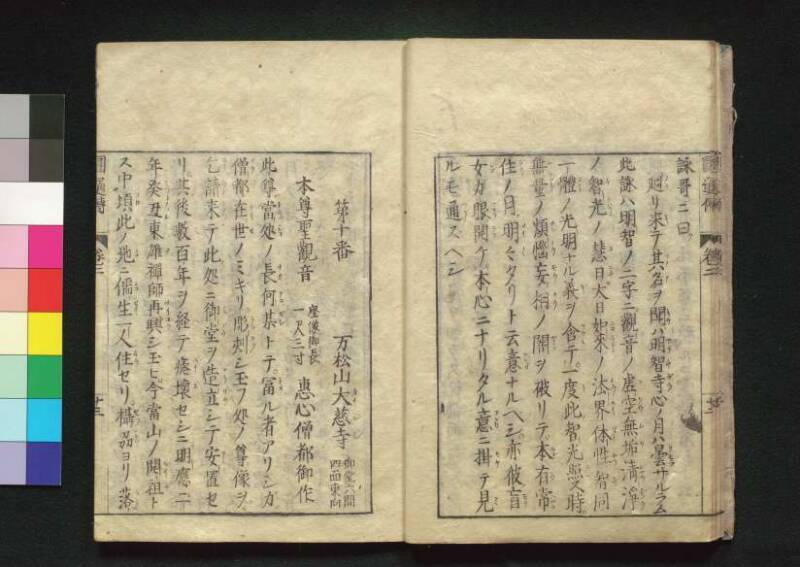 詠哥ニ曰
廻リ来テ其名ヲ聞ハ明智寺心ノ月ハ曇ラサルラム
此詠ハ明智ノ二字ニ観音ノ虚空無垢清浄
ノ智光ノ慧日大日如來ノ法界体性智同
一體ノ光明ナル義ヲ含テ一度此智光照ス時
無量ノ煩惱妄相ノ闇ヲ破リテ本有常
住ノ月明々タリト云意ナルヘシ亦彼盲
女カ眼開ケ本心ニナリタル意ニ掛テ見
ルモ通スヘシ
第十番 万松山大慈寺 御堂六間四面東向
本尊聖觀音 座像御長一尺三寸 惠心僧都御作
此尊當処ノ長何某トテ冨ル者アリシカ
僧都在世ノミキリ彫刻シ玉フ処ノ尊像ヲ
乞請来テ此処ニ御堂ヲ造立シテ安置セ
リ其後数百年ヲ経テ癈壊セシニ明應二
年癸丑東雄禪師再興シ玉ヒ今當山ノ開祖ト
ス中頃此ノ地ニ儒生一人住セリ構品ヨリ落